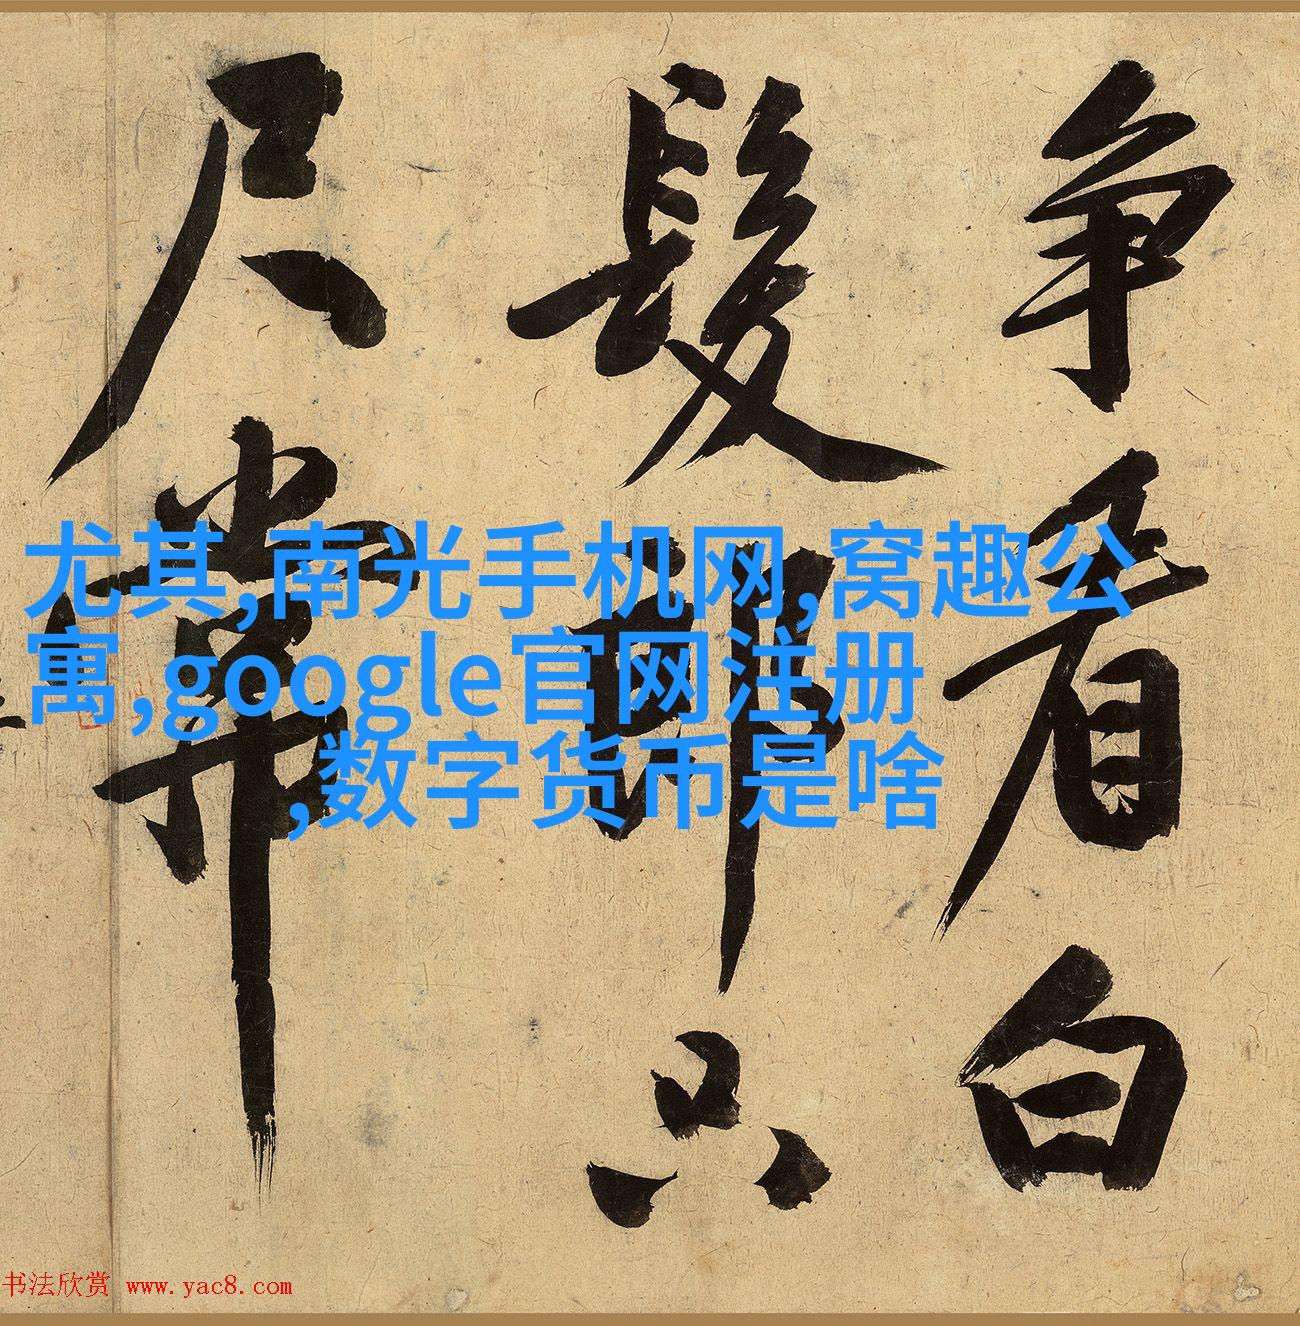 争看白
髮只
尺
尤其,南光手机网,窝趣公
寓,google官网注册
,数字货币是啥
书法欣赏 www.yac8.com